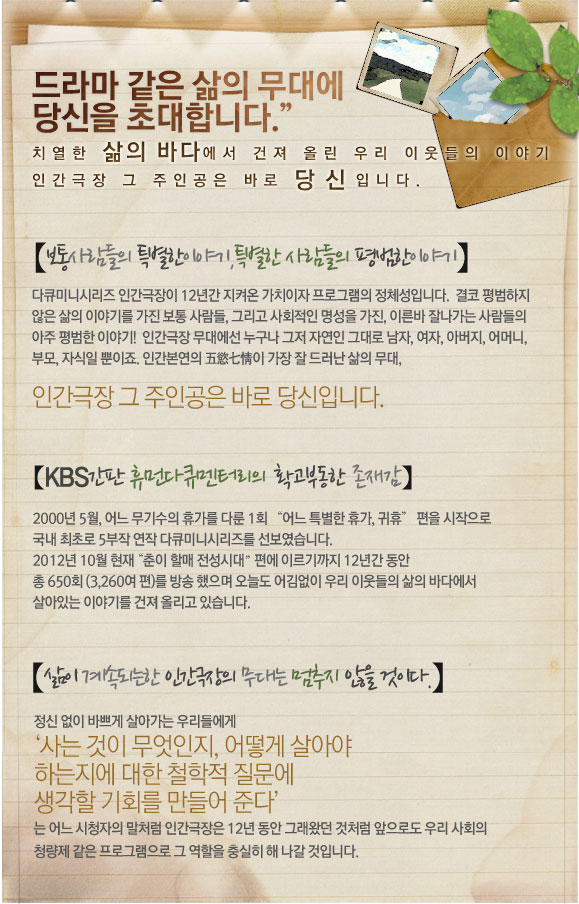 드라마 같은 삶의 무대에
당신을 초대합니다.”
치열한 삶의 바다에서 건져 올린 우리 이웃들의 이야기
인간극장 그 주인공은 바로 당신입니다.
【보통사람들의 특별한이야기, 특별한 사람들의 평범한이야기】
다큐미니시리즈 인간극장이 12년간 지켜온 가치이자 프로그램의 정체성입니다. 결코 평범하지
않은 삶의 이야기를 가진 보통 사람들, 그리고 사회적인 명성을 가진, 이른바 잘나가는 사람들의
아주 평범한 이야기! 인간극장 무대에선 누구나 그저 자연인 그대로 남자, 여자, 아버지, 어머니,
부모, 자식일 뿐이죠. 인간본연의 五慾七情이 가장 잘 드러난 삶의 무대,
인간극장 그 주인공은 바로 당신입니다.
【KBS간판 휴먼다큐멘터리의 확고부동한 존재감】
2000년 5월, 어느 무기수의 휴가를 다룬 1회 “어느 특별한 휴가, 귀휴” 편을 시작으로
국내 최초로 5부작 연작 다큐미니시리즈를 선보였습니다.
2012년 10월 현재 “춘이 할매 전성시대” 편에 이르기까지 12년간 동안
총 650회 (3,260여 편)를 방송 했으며 오늘도 어김없이 우리 이웃들의 삶의 바다에서
살아있는 이야기를 건져 올리고 있습니다.
【삶이 계속되는한 인간극장의 무대는 멈추지 않을 것이다.】
정신 없이 바쁘게 살아가는 우리들에게
‘사는 것이 무엇인지, 어떻게 살아야
하는지에 대한 철학적 질문에
생각할 기회를 만들어 준다’
는 어느 시청자의 말처럼 인간극장은 12년 동안 그래왔던 것처럼 앞으로도 우리 사회의
청량제 같은 프로그램으로 그 역할을 충실히 해 나갈 것입니다.